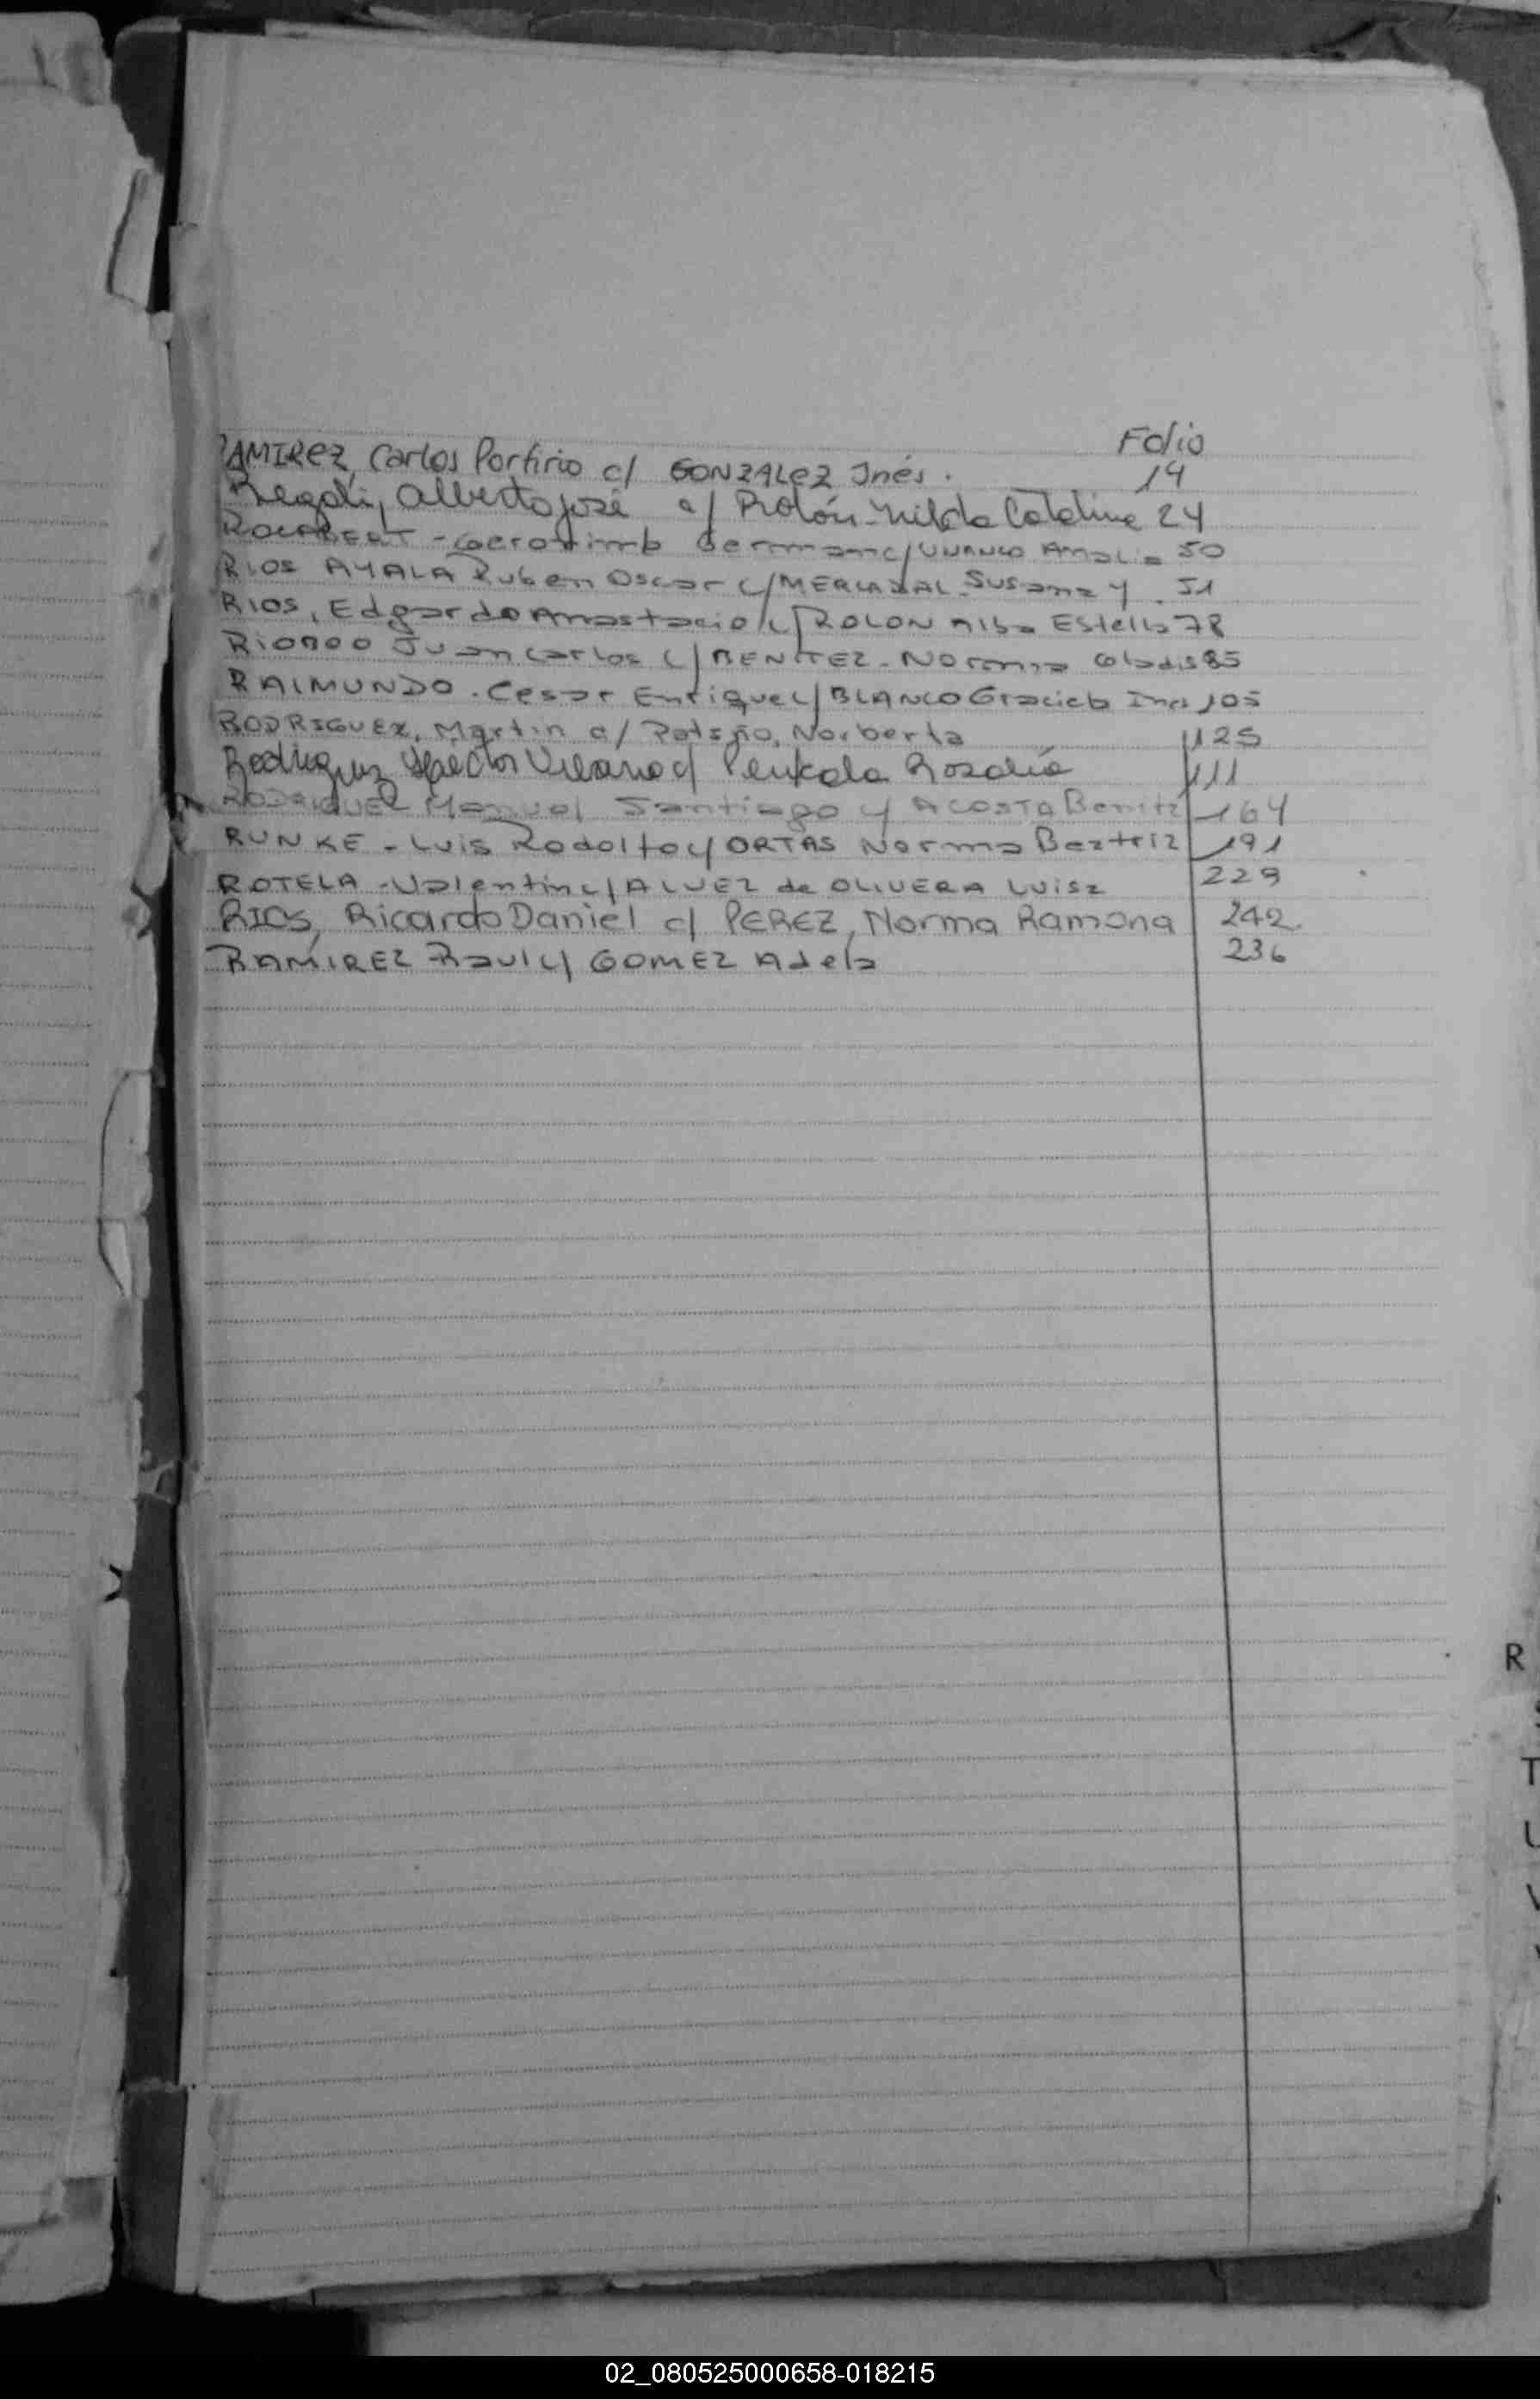 Folio
RAMIREZ, Carlos Porfirio c/ GONZALEZ Inés. 14
Regali, Alberto José c/ Rolón Nilda Catalina 24
ROCABERT - Geronimo German c/ Amalia 50
RIOS AYALA Ruben Oscar c/ MERCADAL Susana Y. 51
RIOS, Edgardo Anastacio c/ ROLON Alba Estella 78
Juan Carlos c/ BENITEZ - Norma Gladis 85
RAIMUNDO. Cesar Enrique c/ BLANCO Graciela Ines 105
RODRIGUEZ, Martin c/ Patiño, Norberta 125
Rodriguez Hector c/ Rosalía 111
RODRIGUEZ Manuel Santiago y ACOSTA 164
RUNKE - Luis Rodolfo c/ ORTAS Norma Beatriz 191
ROTELA - Valentin c/ ALVEZ de OLIVERA Luisa 229
RIOS, Ricardo Daniel c/ PEREZ, Norma Ramona 242.
RAMIREZ Raul c/ GOMEZ Adela 236
R
T
U
V
02_080525000658-018215